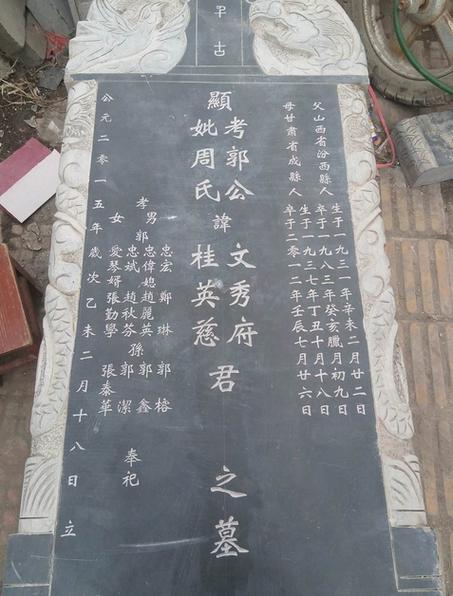 千古
父山西省汾西縣人
生于一九三一年辛未二月廿二日
卒于一九八三年癸亥臘月初九日
母甘肅省成縣人
生于一九三七年丁丑十月十八日
卒于二零一二年壬辰七月廿六日
顯
考郭公
妣周氏
諱
文秀府
桂英慈
君
之墓
孝男郭
忠宏 鄭琳 郭榕
忠偉媳趙麗英孫郭鑫
忠斌 趙秋芬 郭潔
女愛琴婿張勤學 張泰華
奉祀
公元二零一五年歲次乙未二月十八日立